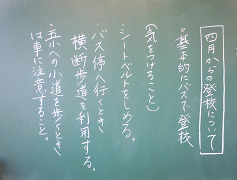 四月からの登校について
・基本的にバスで登校
(気をつけること)
・シートベルトをしめる。
・バス停へ行くとき
横断歩道を利用する。
・五小への小道を歩くとき
は車に注意すること。